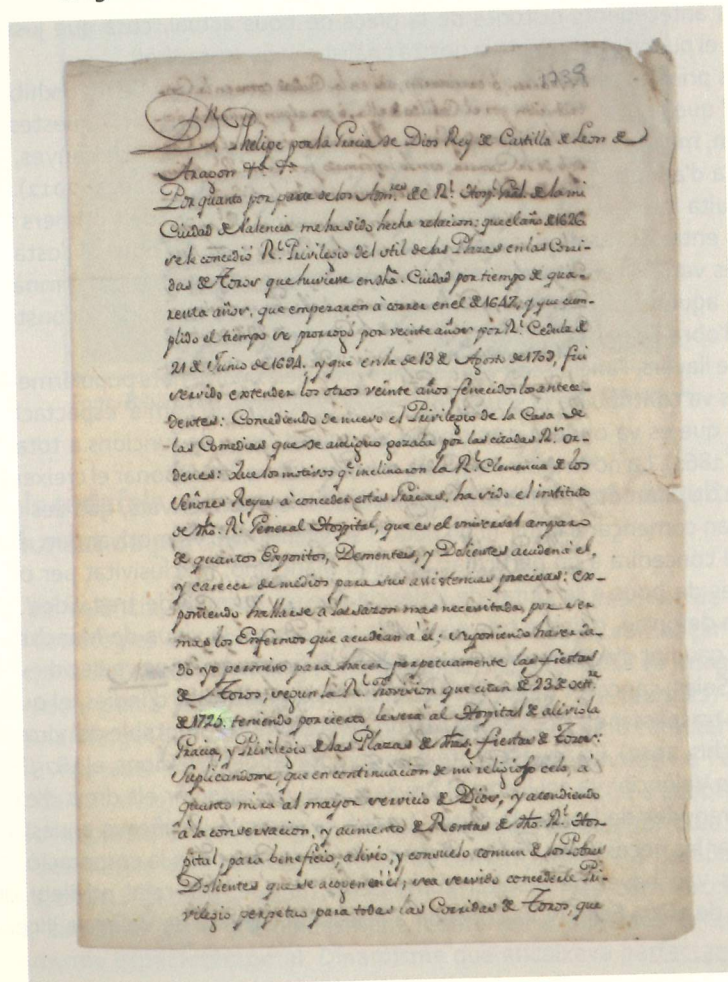 1739
Dn. Phelipe por la Gracia de Dios Rey de Castilla de Leon de
Aragon &a. &a.
Por quanto por parte de los Admres. del Rl. Hospl. Gral. de la mi
Ciudad de Valencia me ha sido hecha relacion: que el año de 1626
se le concedió Rl. Privilegio del util de las Plazas en las Corri-
das de Toros que huviese en dha. Ciudad por tiempo de qua-
renta años, que empezaron à correr en el de 1647, y que cum-
plido el tiempo se prorrogó por veinte años por Rl. Cedula de
21 de Junio de 1694. y que en la de 13 de Agosto de 1709, fui
servido extender los otros veinte años fenecidos los antece-
dentes: Concediendo de nuevo el Privilegio de la Casa de
las Comedias que de antiguo gozaba por las citadas Rs. or-
denes: Que los motivos qe. inclinaron la Rl. Clemencia de los
Señores Reyes à conceder estas Gracias, ha sido el instituto
de dho. Rl. General Hospital, que es el universal amparo
de quantos Expositos, Dementes, y Dolientes acuden á el,
y carecer de medios para sus asistencias precisas: ex-
poniendo hallarse à la sazon mas necesitada, por ser
mas los Enfermos que acudian à él: suponiendo haver da-
do yo permiso para hacer perpetuamente las fiestas
de Toros, segun la Rl. Provision que citan de 23 de octre.
de 1725. teniendo por cierto, la será al Hospital de alivio la
Gracia, y Privilegio de las Plazas de dhas. fiestas de Toros:
Suplicandome, que en continuacion de mi religioso celo, à
quanto mira al mayor servicio de Dios, y atendiendo
à la conservacion, y aumento de Rentas de dho. Rl. Hos-
pital, para beneficio, alivio, y consuelo comun de los Pobres
Dolientes que se acogen en él; sea servido concederle Pri-
vilegio perpetuo para todas las Corridas de Toros, que